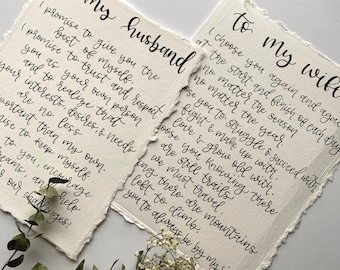 my husband
I promise to give you the
best of myself
I promise to trust and respect
you as your own person
and to realize that
your interests, desires & needs
are no less
important than my own.
to keep myself
to you, encourage
help
our
to my wife
I choose you again and again
at the start and finish of each day
no matter the season
no matter the year
you to struggle & succeed with
to make up with
love & grow old with
you knowing there
are still trails
we must travel
these are mountains
left to climb.
you to always be by my